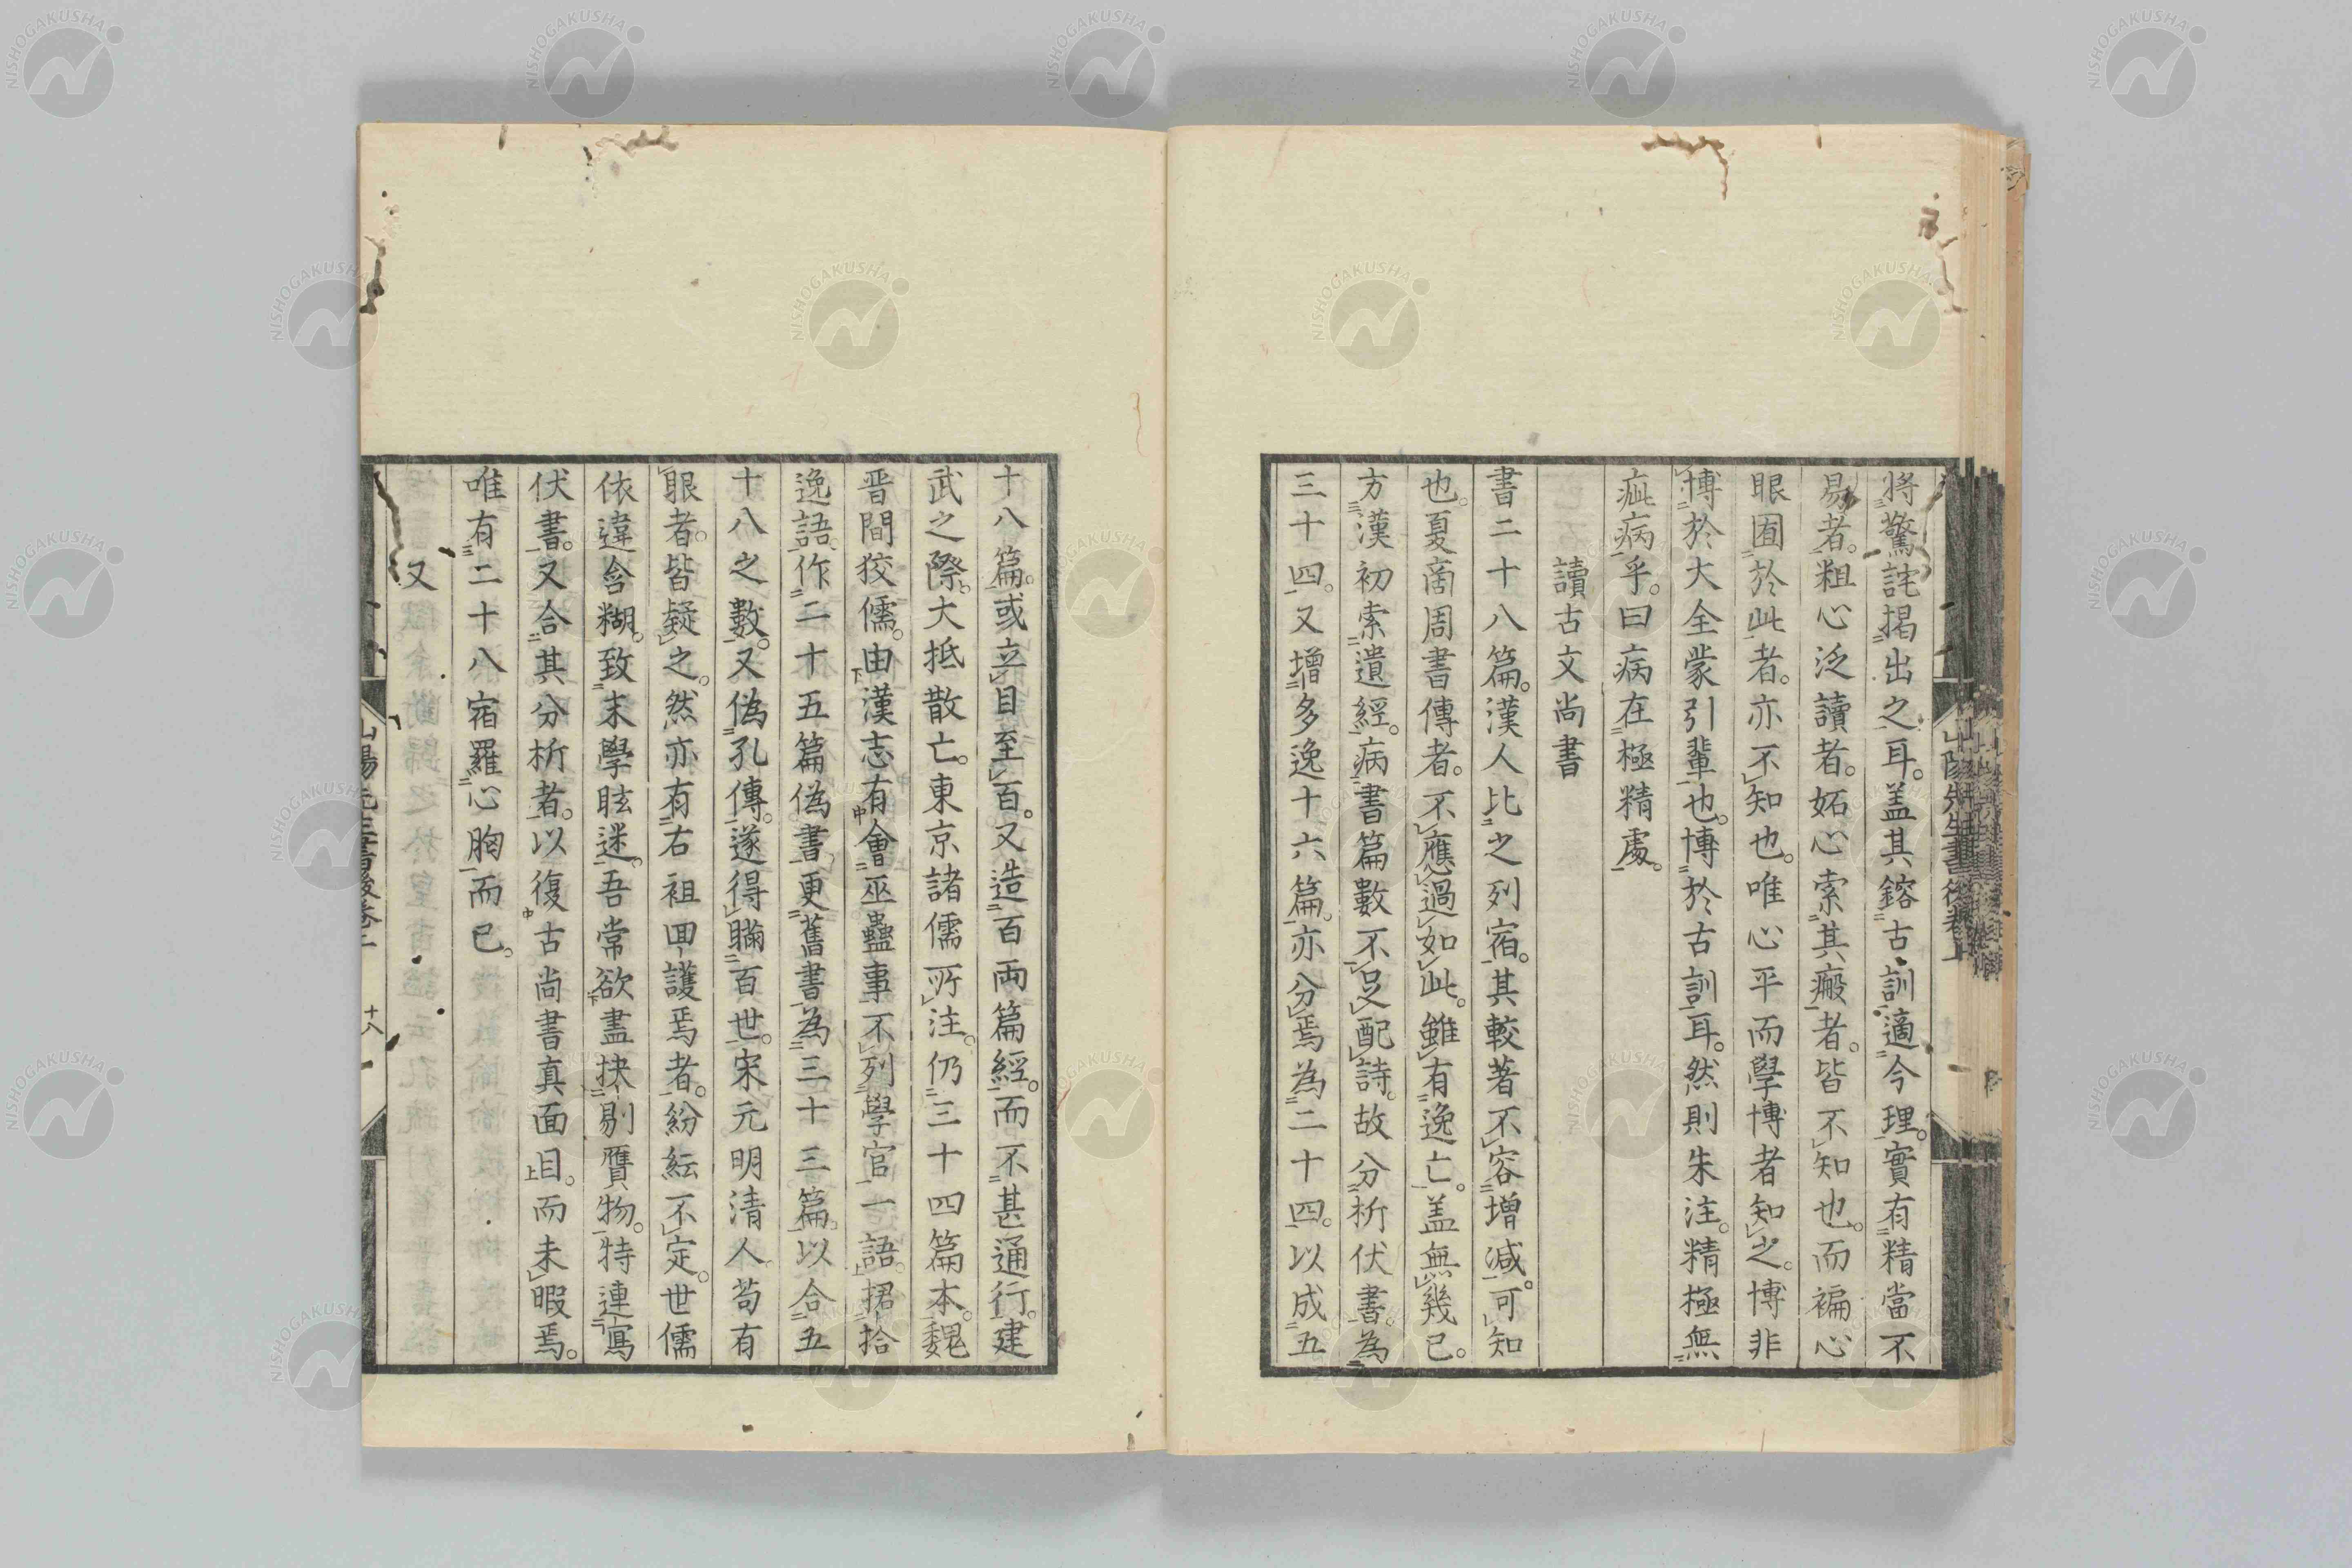 將驚詫揭出之耳。盖其鎔古訓適今理。實有精當不
易者。粗心泛讀者。妬心索其瘢者。皆不知也。而褊心
眼囿於此者。亦不知也。唯心平而學博者知之。博非
博於大全蒙引輩也。博於古訓耳。然則朱注。精極無
疵病乎。曰病在極精處。
讀古文尚書
書二十八篇。漢人比之列宿。其較著不容增減。可知
也。夏商周書傳者。不應過如此。雖有逸亡。盖無幾已。
方漢初索遺經。病書篇數不足配詩。故分析伏書。為
三十四。又增多逸十六篇。亦分焉為二十四。以成五
十八篇。或立目至百。又造百兩篇經。而不甚通行。建
武之際。大抵散亡。東京諸儒所注。仍三十四篇本。魏
晋間狡儒。由漢志有會巫蠱事不列學官一語。捃拾
逸語。作二十五篇偽書。更舊書為三十三篇。以合五
十八之數。又偽孔傳。遂得瞞百世。宋元明清人。苟有
眼者。皆疑之。然亦有右袒回護焉者。紛紜不定。世儒
依違含糊。致末學眩迷。吾常欲盡抉剔贋物。特連寫
伏書。又合其分析者。以復古尚書真面目。而未暇焉。
唯有二十八宿羅心胸而已。
又
山陽先生書後卷上
十八
NISHOGAKUSHA